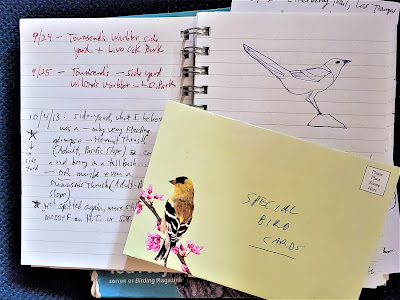 9/24 - Townsend's Warbler side
yard + Live Oak Park
9/25 - Townsend's - side yard
Wilson's Warbler - L.O. Park
10/4/13: side-yard, what I believe
was a - only very fleeting
glimpse - Hermit Thrush
(Adult, Pacific Slope) 
side
yard
a red being in a tall bush
- OR maybe even a
Swainson's Thrush (Adult-Pac
Slope)
not spotted again, more
on H.T. or
SPECIAL
BIRD
CARDS
Please
Place
Postage
Here
EDITOR OF Birding Magazine